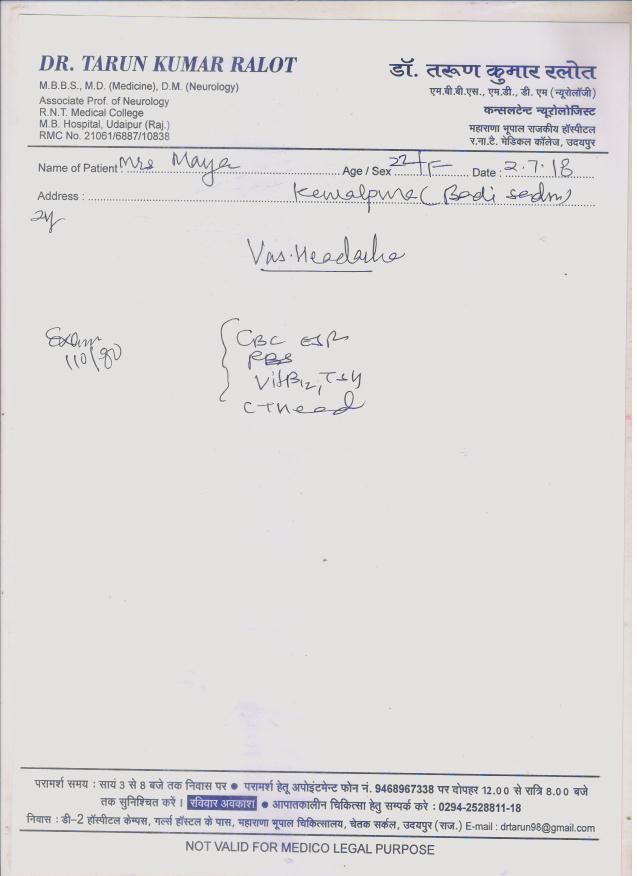 DR. TARUN KUMAR RALOT
M.B.B.S., M.D. (Medicine), D.M. (Neurology)
Associate Prof. of Neurology
R.N.T. Medical College
M.B. Hospital, Udaipur (Raj.)
RMC No. 21061/6887/10838
डॉ. तरूण कुमार रलोत
एम.बी.बी.एस., एम.डी., डी. एम (न्यूरोलॉजी)
कन्सलटेन्ट न्यूरोलोजिस्ट
महाराणा भूपाल राजकीय हॉस्पीटल
र.ना.टै. मेडिकल कॉलेज, उदयपुर
Name of Patient : Mrs Maya Age / Sex 22/F Date : 2.7.18
Address :
Vas. Headache
Exam
110/80
CBC ESR
RBS
VitB12, TSH
CT Head
परामर्श समय : सायं 3 से 8 बजे तक निवास पर ● परामर्श हेतू अपोइंटमेन्ट फोन नं. 9468967338 पर दोपहर 12.00 से रात्रि 8.00 बजे
तक सुनिश्चित करें। रविवार अवकाश ● आपातकालीन चिकित्सा हेतु सम्पर्क करे : 0294-2528811-18
निवास : डी-2 हॉस्पीटल केम्पस, गर्ल्स हॉस्टल के पास, महाराणा भूपाल चिकित्सालय, चेतक सर्कल, उदयपुर (राज.) E-mail : drtarun98@gmail.com
NOT VALID FOR MEDICO LEGAL PURPOSE